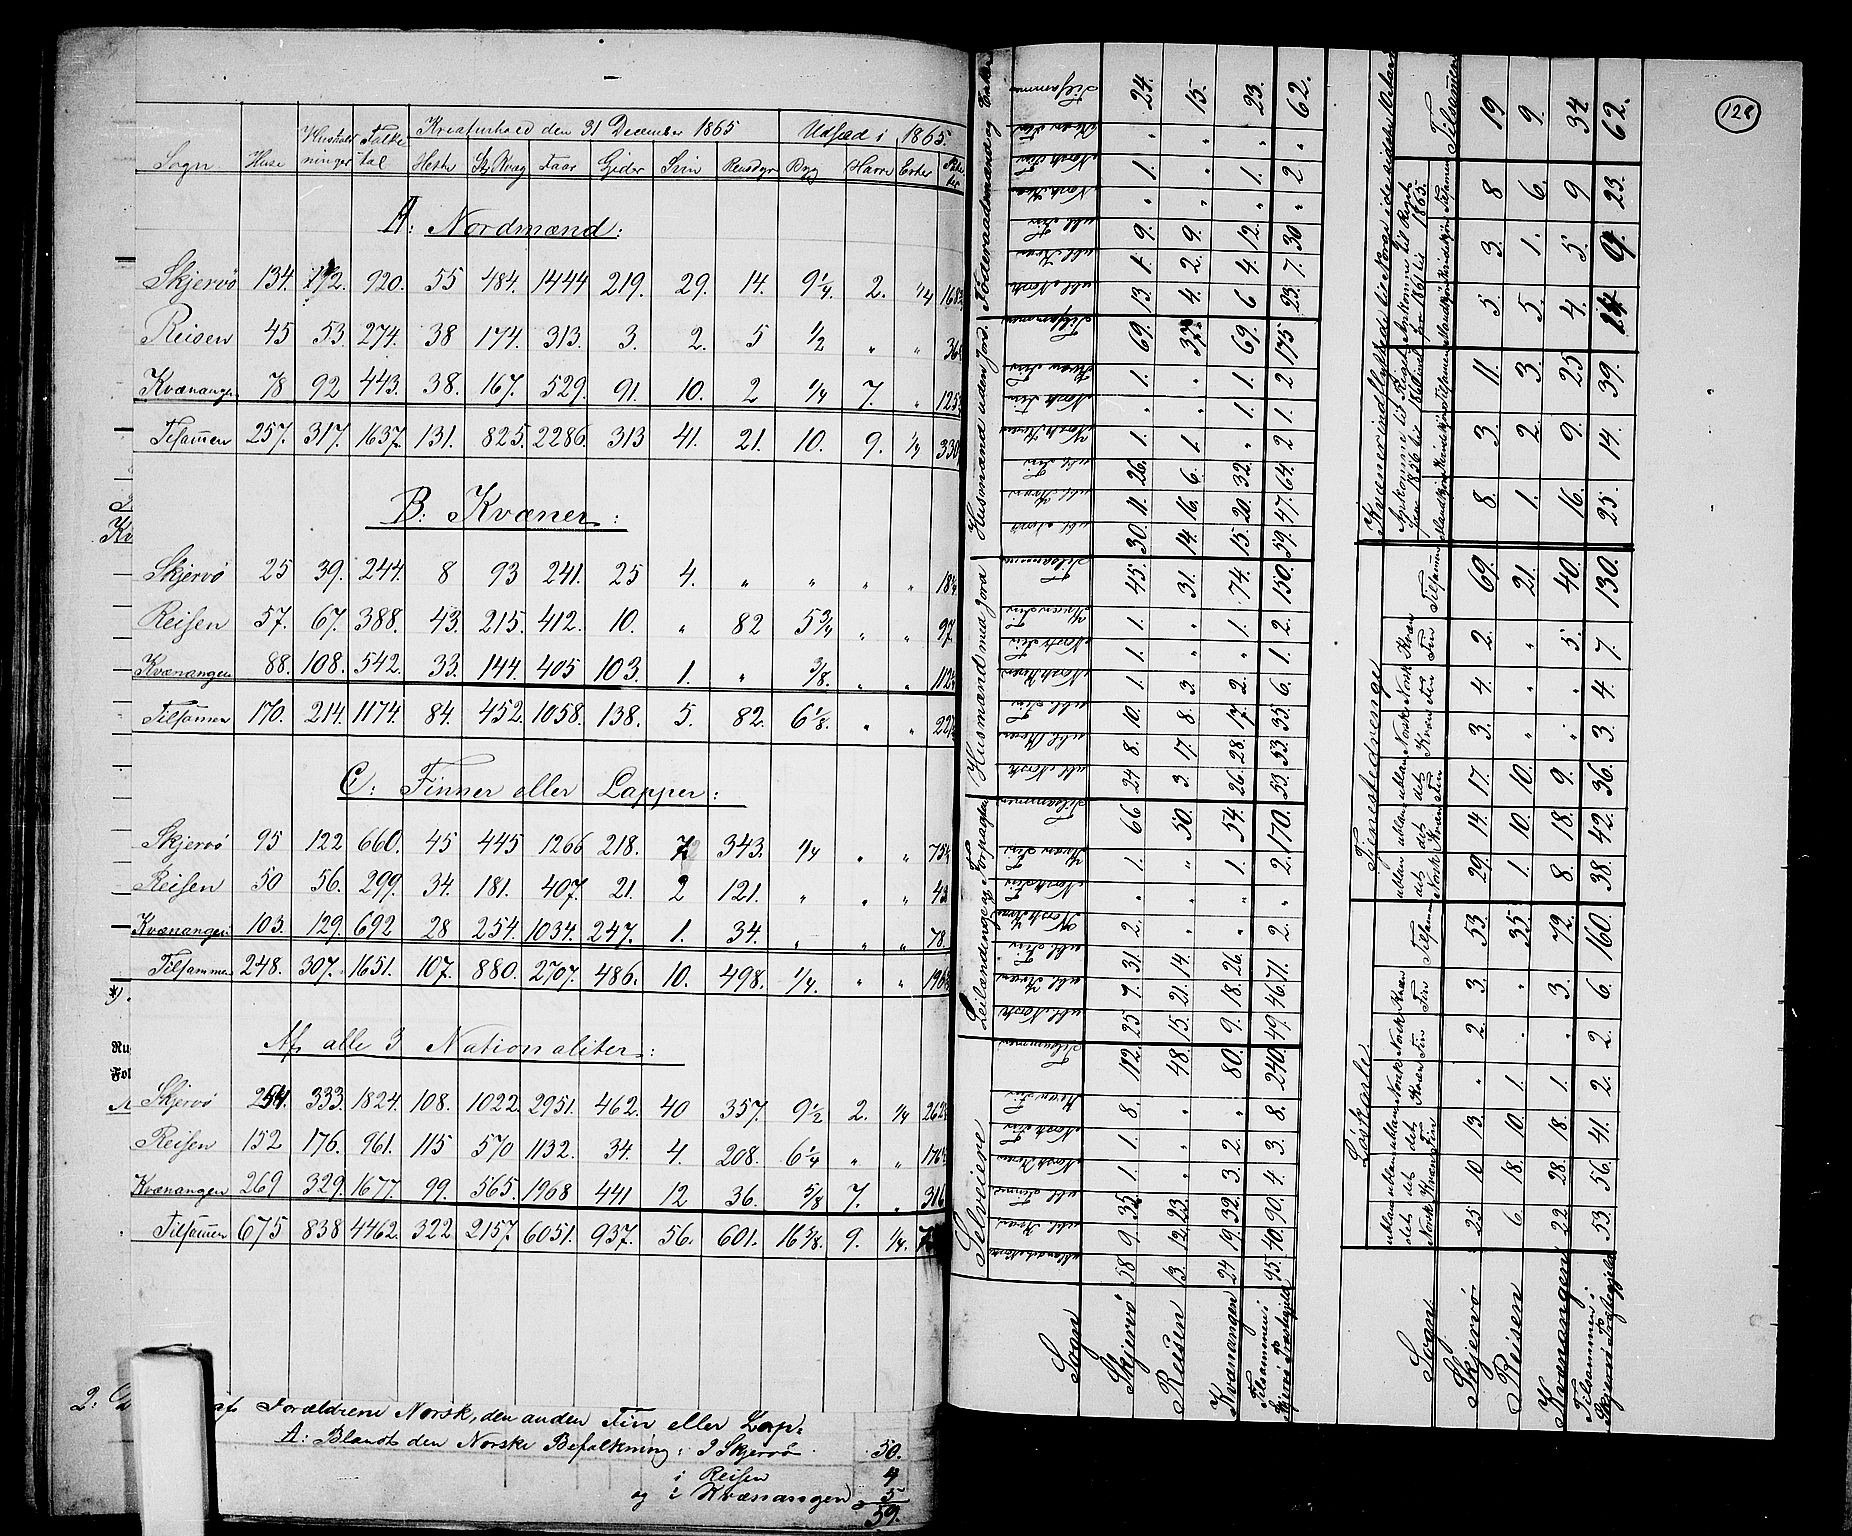 Kreaturhold den 31 December 1865 Udsæd i 1865.
Sogn Huse Hushold-ninger Folke-tal Heste St. Kvæg Faar Gjeder Svin Rensdyr Byg Havre Erter Poteter
A: Nordmænd:
Skjervö 134. 172. 920. 55 484. 1444 219. 29. 14. 9 1/4 2. 1/4
Reisen 45 53. 274. 38 174. 313. 3. 2. 5 1/2 " "
Kvænangen 78 92 443. 38. 167. 529. 91. 10. 2 1/4 7. "
Tilsammen 257. 317. 1637. 131. 825. 2286. 313 41. 21. 10. 9. 1/4 330
B: Kvæner:
Skjervö 25 39. 244. 8 93 241. 25 4. " " " "
Reisen 57. 67. 388. 43. 215. 412. 10. " 82 5 3/4 " " 97.
Kvænangen 88. 108. 542. 33. 144. 405 103. 1. " 3/8. " "
Tilsammen 170. 214. 1174. 84. 452. 1058. 138. 5. 82. 6 1/8. " "
C: Finner eller Lapper:
Skjervö 95 122 660. 45 445 1266 218. 7 343. 1/4 " "
Reisen 50 56. 299. 34. 181. 407. 21. 2 121. " " " 43
Kvænangen 103. 129. 692 28 254. 1034. 247. 1. 34. " " " 78.
Tilsammen 248. 307. 1651. 107. 880. 2707. 486. 10. 498. 1/4. " "
Af alle 3 Nationaliteter:
Skjervö 254. 333. 1824. 108. 1022. 2951. 462. 40 357. 9 1/2 2. 1/4
Reisen 152 176. 961. 115 570 1132. 34. 4. 208. 6 1/4 " "
Kvænangen 269 329. 1677. 99. 565. 1968 441 12 36. 5/8 7. "
Tilsammen 675 838 4462. 322. 2157. 6051. 937. 56. 601. 16 3/8. 9. 1/4.
2.
af Forældrene Norsk, den anden Fin eller Lap.
A: Blandt den Norske Befolkning: I Skjervö 50.
i Reisen 4
og i Kvænangen 5
59.
128
Selveiere
Leilændinge og Forpagtere
Husmænd med Jord
Husmænd uden Jord
Föderaadsmænd og Enker
Sogn
Skjervö 58 9. 35 1. 1. 8. 112 25 7. 31 2. " 1. 66 24 8. 10. 1. 1. 1. 45. 30. 11. 26. 1. " 1. 69. 13. 1. 9. " 1. " 24.
Reisen 13. 12. 23. " " " 48. 15. 21. 14. " " " 50. 3. 17. 8. 3. " " 31. 14. 16. 6. 1. " " 37. 4. 2. 9. " " " 15.
Kvænangen 24 19. 32. 3. 2. " 80. 9. 18. 26. " " 1. 54. 26. 28. 17. 2. " 1. 74. 15. 20. 32. " 1. 1. 69. 6 4. 12. " 1. " 23.
Tilsammen i Skjervö Præstegjeld 95. 40. 90. 4 3. 8. 240. 49. 46. 71. 2. " 2. 170. 53. 53. 35. 6. 1. 2. 150. 59. 47. 64. 2 1. 2 175 23. 7. 30 " 2. " 62.
Löskarle
Tjenestedrenge
Kvæner indflyttede til Norge i de sidste 10 Aar
Ankomne til Riget fra 1856 til 1860 incl.
Ankomne til Riget fra 1861 til 1865.
Tilsammen
Sogn
Skjervö 25 10 13. " 2. 3. 53. 29. 14. 17. 3. 4. 2. 69. 8. 3. 11. 5. 3. 8 19
Reisen 6. 18. 10. 1. . " 35. 1. 10. 10. " " " 21. 1. 2. 3. 5. 1. 6. 9.
Kvænangen 22 28. 18. 1. . 3. 72. 8. 18. 9. " " 5. 40. 16. 9. 25 4. 5. 9 34
Tilsammen i Skjervö Præstegjeld 53 56. 41. 2 2. 6. 160. 38. 42. 36. 3. 4. 7. 130. 25. 14. 39. 14 9. 23. 62.